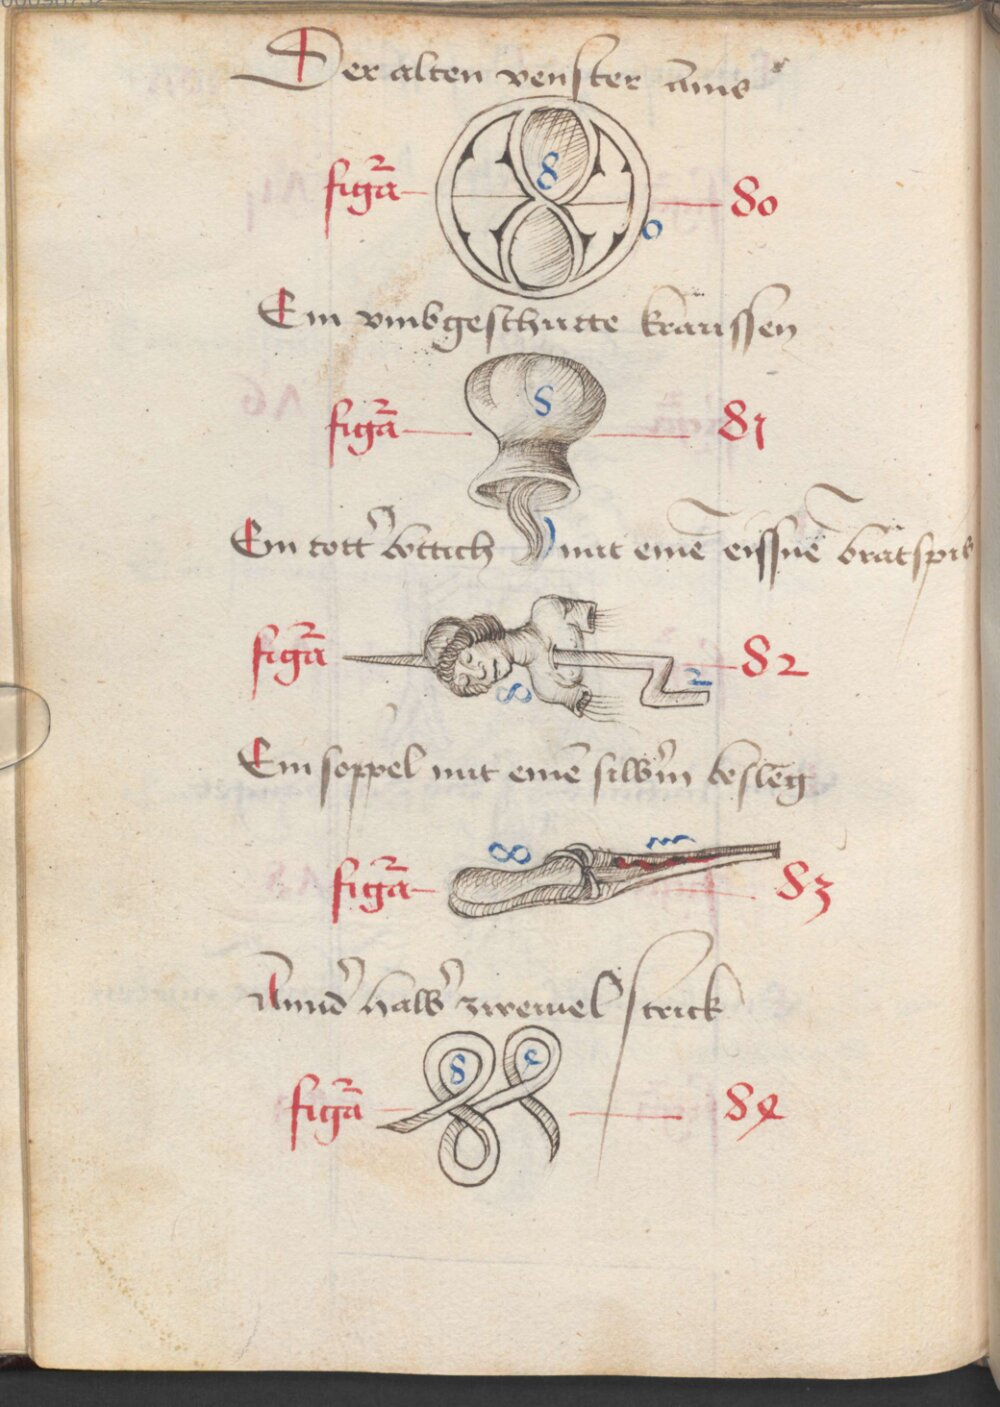 Der alten venster ains
figa 8 80
0
Ein vmbgeschutte kraussen
figa 8 81
Ein tott bottich mit eine eissne bratspis
figa 82
8 2
Ein soppel mit eine silbin besleg
figa 8 83
halb zweiuel strick
figa 8 4 84